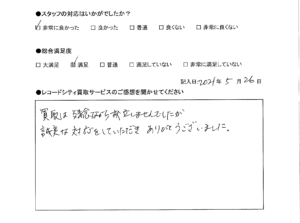 ●スタッフの対応はいかがでしたか？
☑非常に良かった □良かった □普通 □良くない □非常に良くない
●総合満足度
□大満足 ☑満足 □普通 □満足していない □非常に満足していない
記入日 2021年 5月 26日
●レコードシティ買取サービスのご感想を聞かせてください
買取は残念ながら成立しませんでしたが
誠実な対応をしていただきありがとうございました。